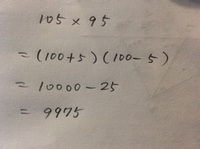 105 × 95
= (100+5) (100-5)
= 10000 - 25
= 9975